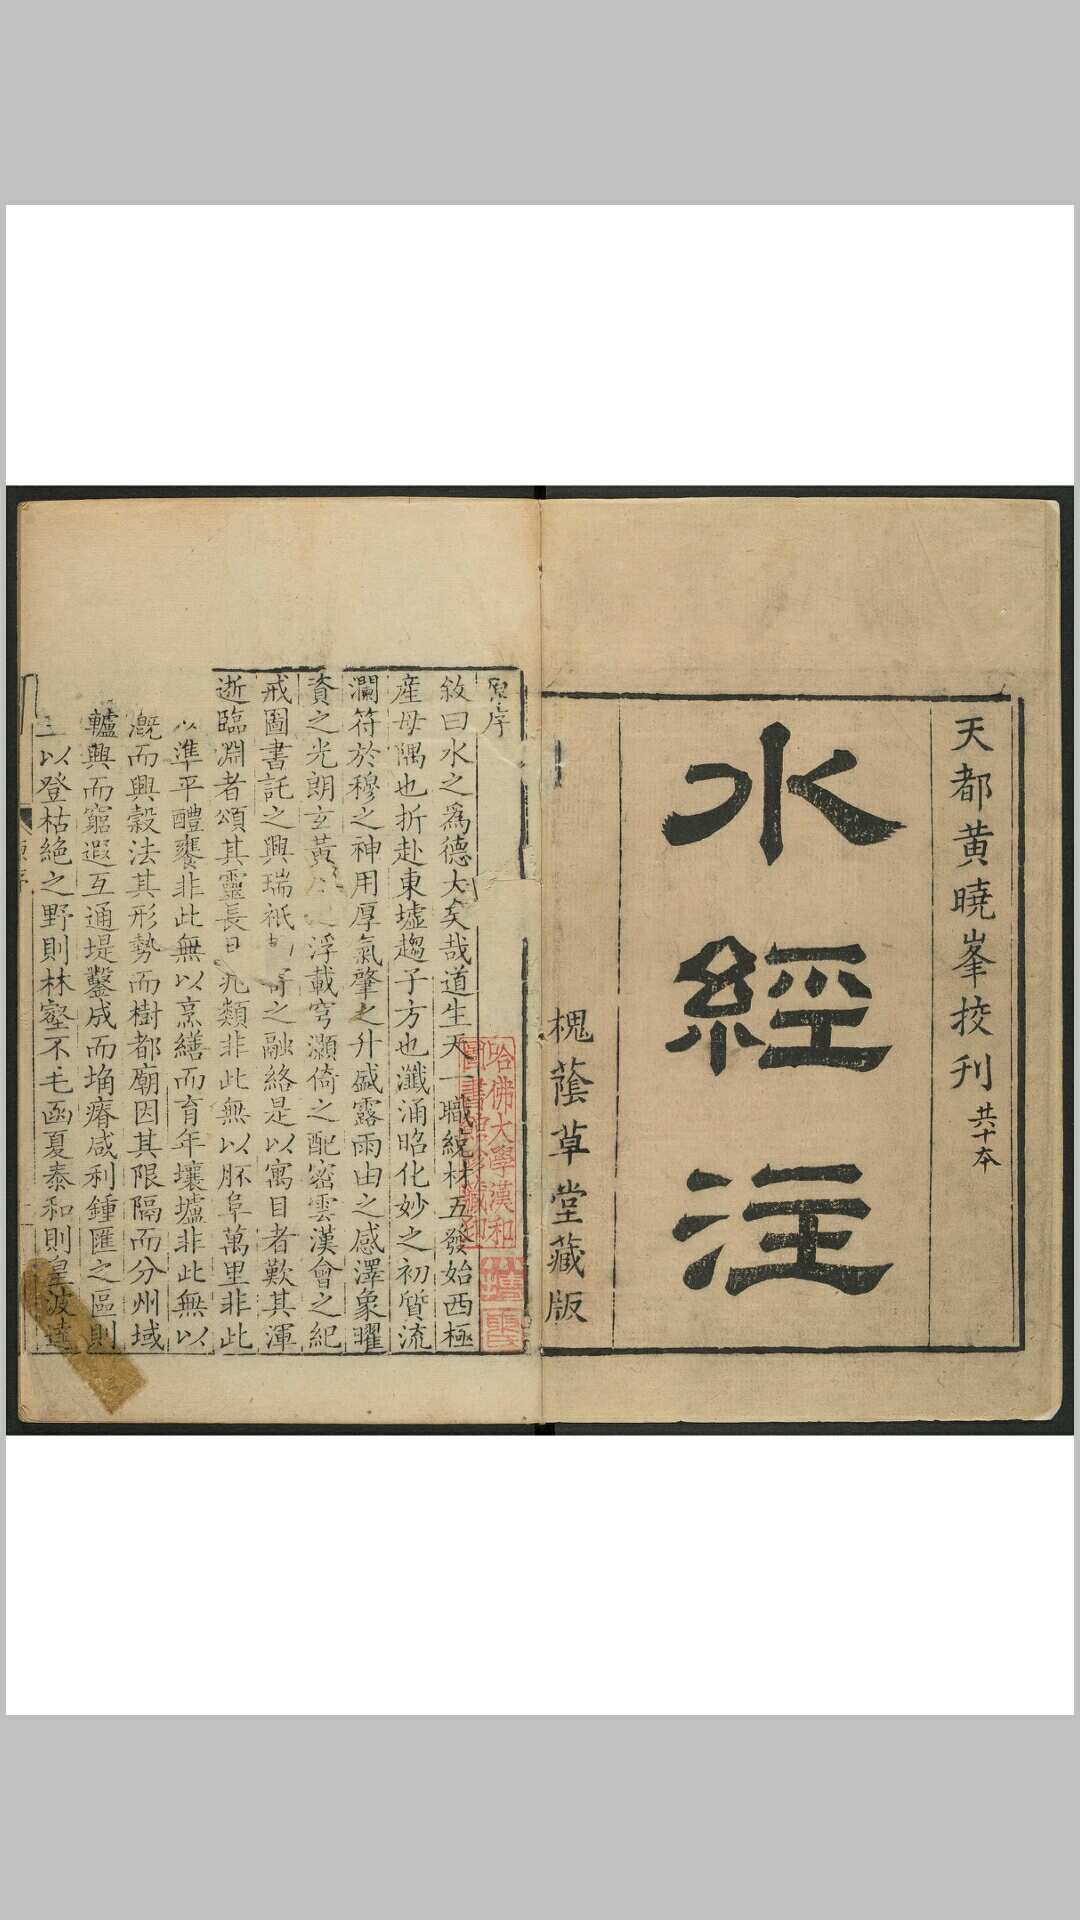 天都黄曉峯挍刊 共十本
水經注
槐蔭草堂藏版
原序
敘曰水之爲德大矣哉道生天一職統材五發始西極
産母隅也折赴東墟趨子方也瀸涌昭化妙之初質流
瀾符於穆之神用厚氣肇之升盛露雨由之感澤象曜
資之光朗玄黃 浮載穹灝倚之配密雲漢會之紀
戒圖書託之興瑞祇 之融絡是以寓目者歎其渾
逝臨淵者頌其靈長 類非此無以胚阜萬里非此
以準平醴饔非此無以烹繕而育年壤壚非此無以
漑而興穀法其形勢而樹都廟因其限隔而分州域
轤興而窮遐互通堤鑿成而埆瘠咸利鍾匯之區則
以登枯絶之野則林壑不毛函夏泰和則皇波達
哈佛大學漢和
圖書館珍藏印